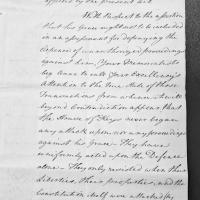 offered by the present Act.
With Respect to the assertion
that his Grace ought not to be included
in an assessment for defraying the
expences of unauthorized proceedings
against him, Your Memorialists
beg leave to call Your Excellency's
attention to the true state of those
Transactions from whence it will
beyond Contradiction appear that
the House of Keys never began
any attack upon, nor any proceedings
against his Grace. They have
uniformly acted upon the Defence
alone. They only resisted when their
Liberties, their properties, and the
Constitution itself were attacked by